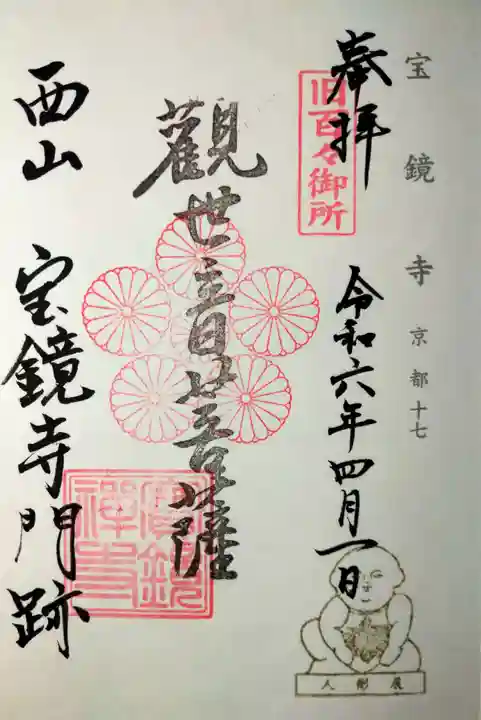 宝鏡寺 京都十七
奉拝
旧百々御所
令和六年四月一日
觀世音菩薩
寶鏡禅寺
西山 宝鏡寺門跡
人形展